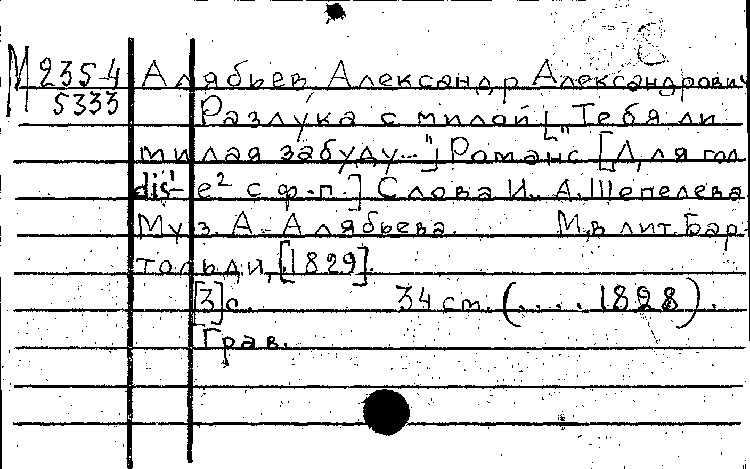 М 235-4 Алябьев, Александр Александрович
5333 Разлука с милой ["Тебя ли
милая забуду..."] Романс [Для гол.
dis¹- e² с ф.-п.] Слова И. А. Шепелева
Муз. А. Алябьева. М., в лит. Бар-
тольди, [1829].
[3] с. 34 см. (.... 1828).
Грав.